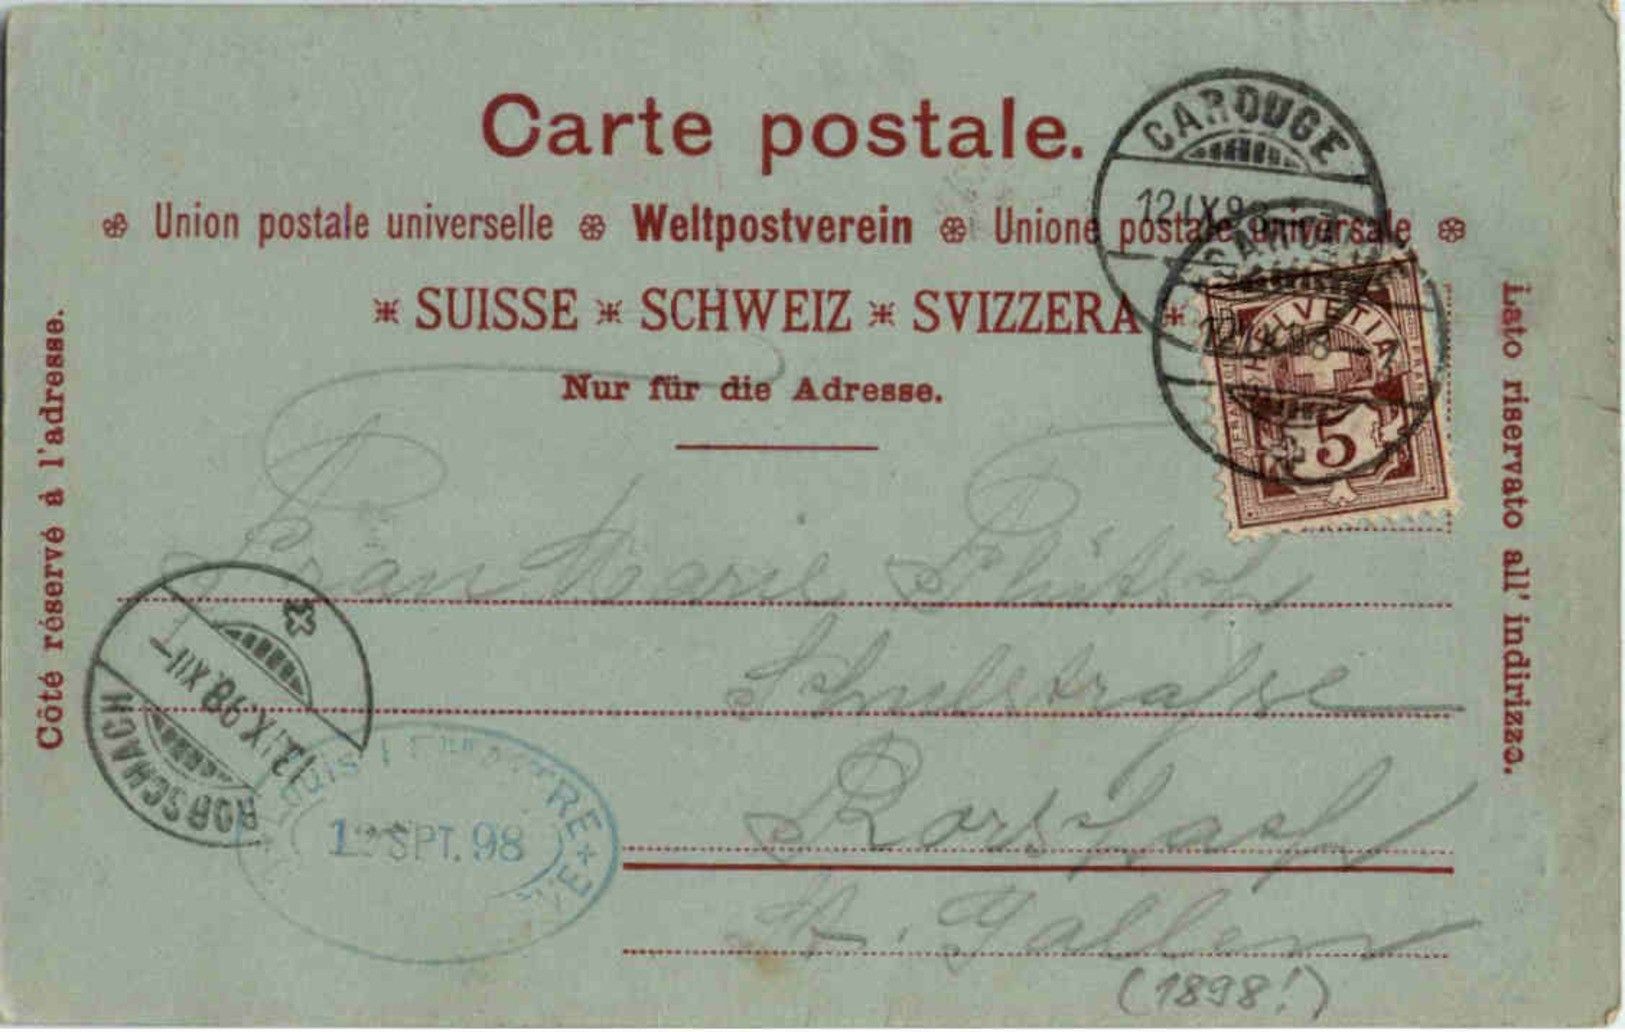 Carte postale.
Union postale universelle Weltpostverein Unione postale universale
SUISSE SCHWEIZ SVIZZERA
Nur für die Adresse.
Côté réservé à l'adresse.
Lato riservato all' indirizzo.
CAROUGE
12.IX.98
12.IX.98
HELVETIA
5
Marie
Schulstrasse
Rorschach
St. Gallen
(1898!)
RORSCHACH
12.IX.98.XII
SPT. 98